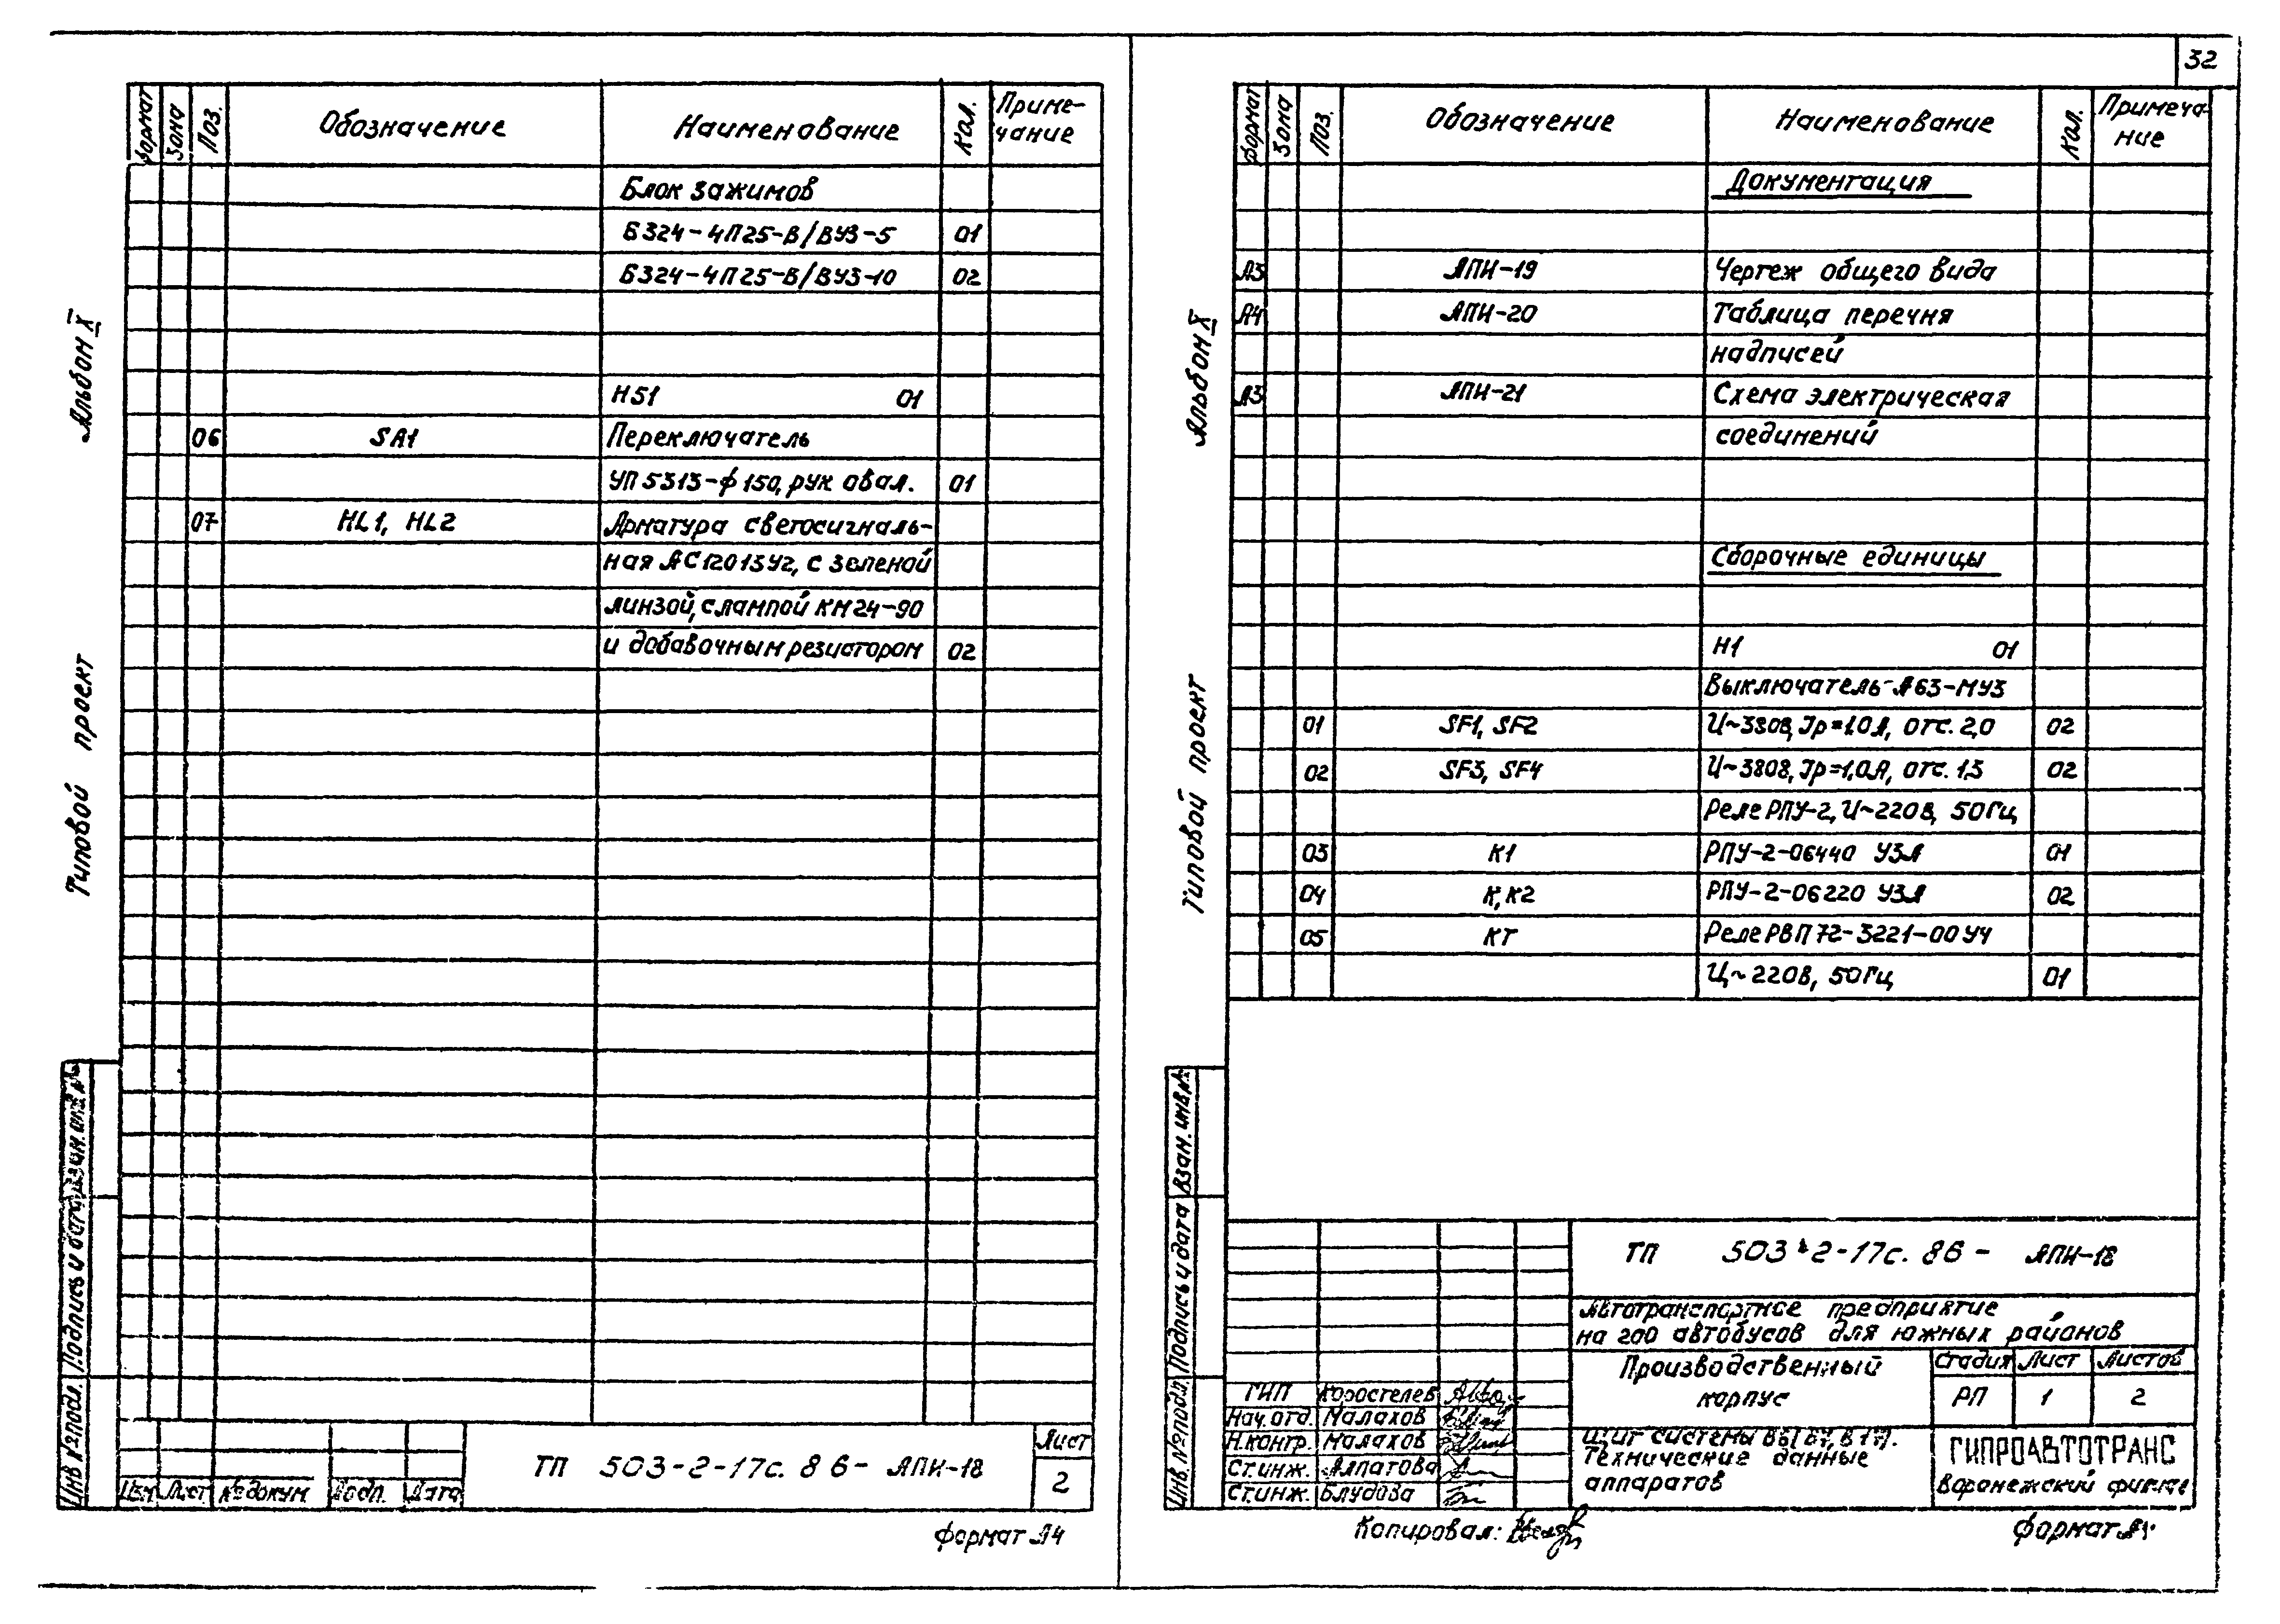 32
Формат Зона Поз. Обозначение Наименование Кол. Приме-
чание
Блок зажимов
БЗ24-4П25-В/ВУЗ-5 01
БЗ24-4П25-В/ВУЗ-10 02
Н51 01
06 SA1 Переключатель
УП 5313-ф 150, рук овал. 01
07 HL1, HL2 Арматура светосигналь-
ная АС12013У2, с зеленой
линзой, с лампой КМ24-90
и добавочным резистором 02
Альбом X
Типовой проект
Взам. инв. №
Подпись и дата
Инв. № подл.
Изм Лист № докум. Подп. Дата
ТП 503-2-17с. 86- АПИ-18
Лист
2
Формат А4
Формат Зона Поз. Обозначение Наименование Кол. Примеча-
ние
Документация
А3 АПИ-19 Чертеж общего вида
А4 АПИ-20 Таблица перечня
надписей
А3 АПИ-21 Схема электрическая
соединений
Сборочные единицы
Н1 01
Выключатель А63-МУ3
01 SF1, SF2 U~380В, Iр=1,0А, отс. 2,0 02
02 SF3, SF4 U~380В, Iр=1,0А, отс. 1,3 02
Реле РПУ-2, U~220В, 50Гц
03 К1 РПУ-2-06440 У3А 01
04 К, К2 РПУ-2-06220 У3А 02
05 КТ Реле РВП72-3221-00У4
U~220В, 50Гц 01
Альбом X
Типовой проект
Взам. инв. №
Подпись и дата
Инв. № подл.
ТП 503-2-17с. 86- АПИ-18
Автотранспортное предприятие
на 200 автобусов для южных районов
Производственный
корпус
Стадия Лист Листов
РП 1 2
ГИП Коростелев
Нач. отд. Малахов
Н.контр. Малахов
Ст.инж. Алпатова
Ст.инж. Блудова
Щит системы В6, В7, В17.
Технические данные
аппаратов
ГИПРОАВТОТРАНС
Воронежский филиал
Копировал:
Формат А4